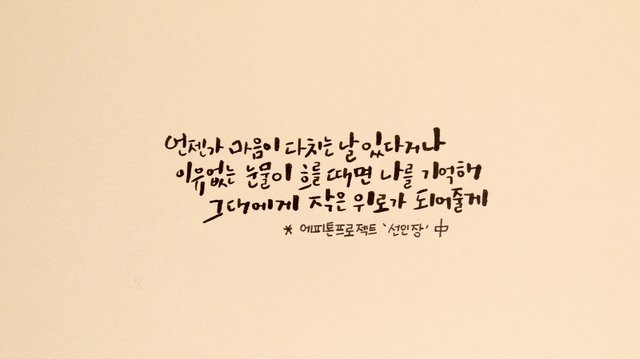 언젠가 마음이 다치는 날 있다거나
이유없는 눈물이 흐를 때면 나를 기억해
그대에게 작은 위로가 되어줄게
* 에피톤프로젝트 '선인장' 中